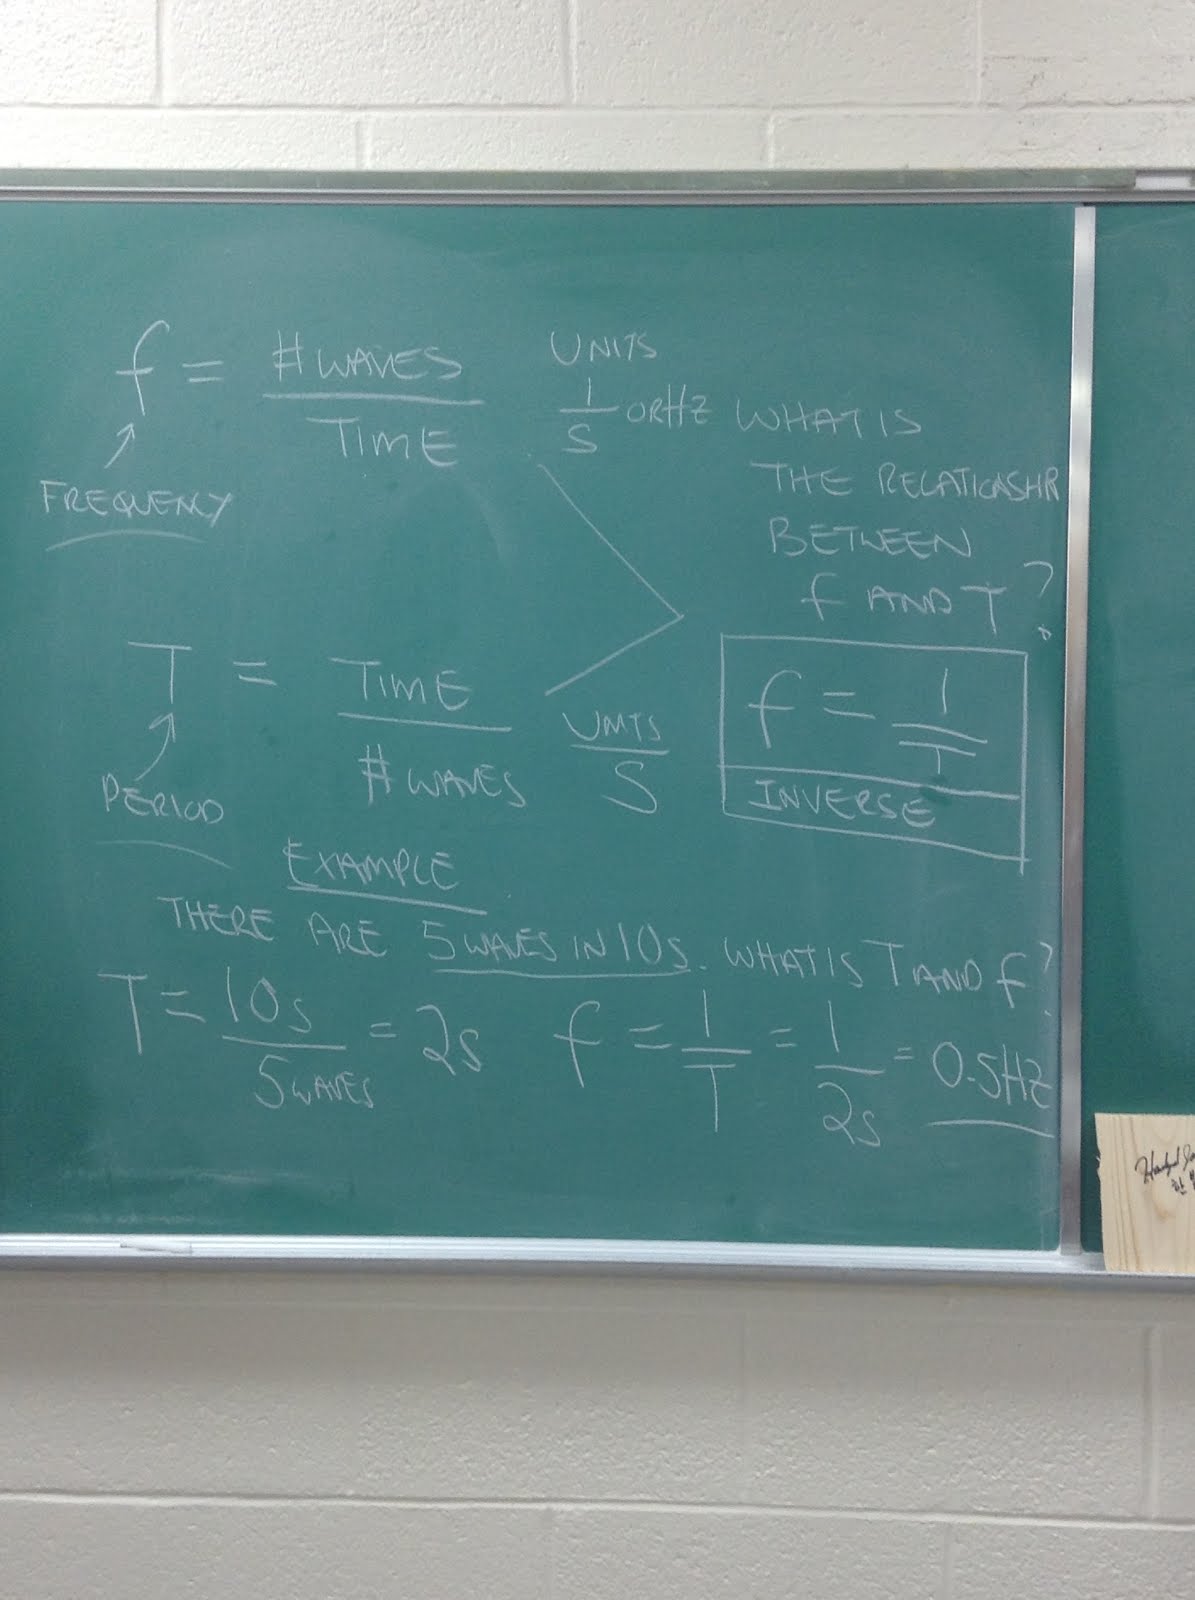 f = # WAVES / TIME
UNITS
1/S OR HZ
FREQUENCY
WHAT IS
THE RELATIONSHP
BETWEEN
f AND T?
T = TIME / # WAVES
UNITS
S
PERIOD
f = 1/T
INVERSE
EXAMPLE
THERE ARE 5 WAVES IN 10s. WHAT IS T AND f?
T = 10s / 5 WAVES = 2s f = 1/T = 1/2s = 0.5HZ